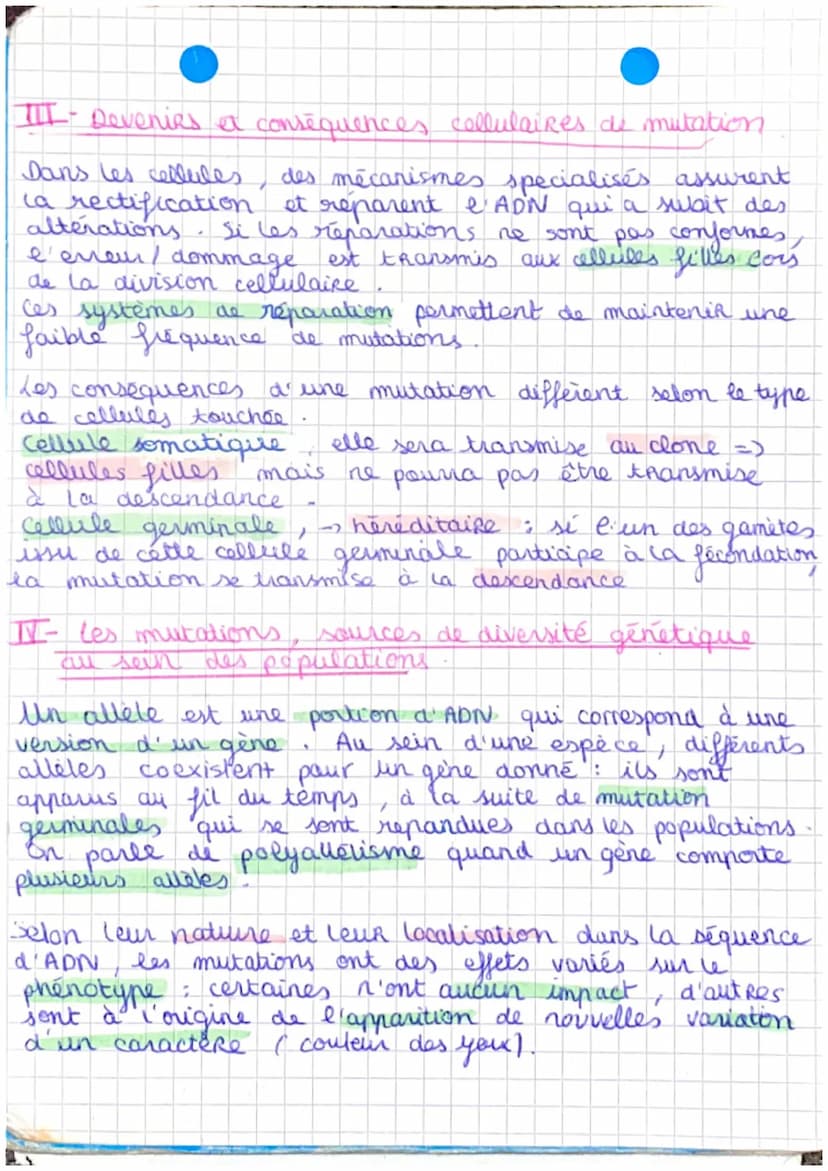 III - Devenirs et conséquences cellulaires de mutation
Dans les cellules, des mécanismes specialisés assurent
la rectification et réparent l'ADN qui a subit des
altérations. Si les réparations ne sont pas conformes,
l'erreur / dommage est transmis aux cellules filles lors
de la division cellulaire.
Ces systèmes de réparation permettent de maintenir une
faible fréquence de mutations.
Les conséquences d'une mutation diffèrent selon le type
de cellules touchée.
Cellule somatique, elle sera transmise au clone =>
cellules filles mais ne pourra pas être transmise
à la descendance.
Cellule germinale, -> héréditaire : si l'un des gamètes
issu de cette cellule germinale participe à la fécondation,
la mutation se transmise à la descendance
IV - Les mutations, sources de diversité génétique
au sein des populations.
Un allèle est une portion d'ADN qui correspond à une
version d'un gène. Au sein d'une espèce, différents
allèles coexistent pour un gène donné : ils sont
apparus au fil du temps, à la suite de mutation
germinales qui se sont repandues dans les populations.
On parle de polyallélisme quand un gène comporte
plusieurs allèles.
Selon leur nature et leur localisation dans la séquence
d'ADN, les mutations ont des effets variés sur le
phénotype : certaines n'ont aucun impact, d'autres
sont à l'origine de l'apparition de nouvelles variation
d'un caractère (couleur des yeux).